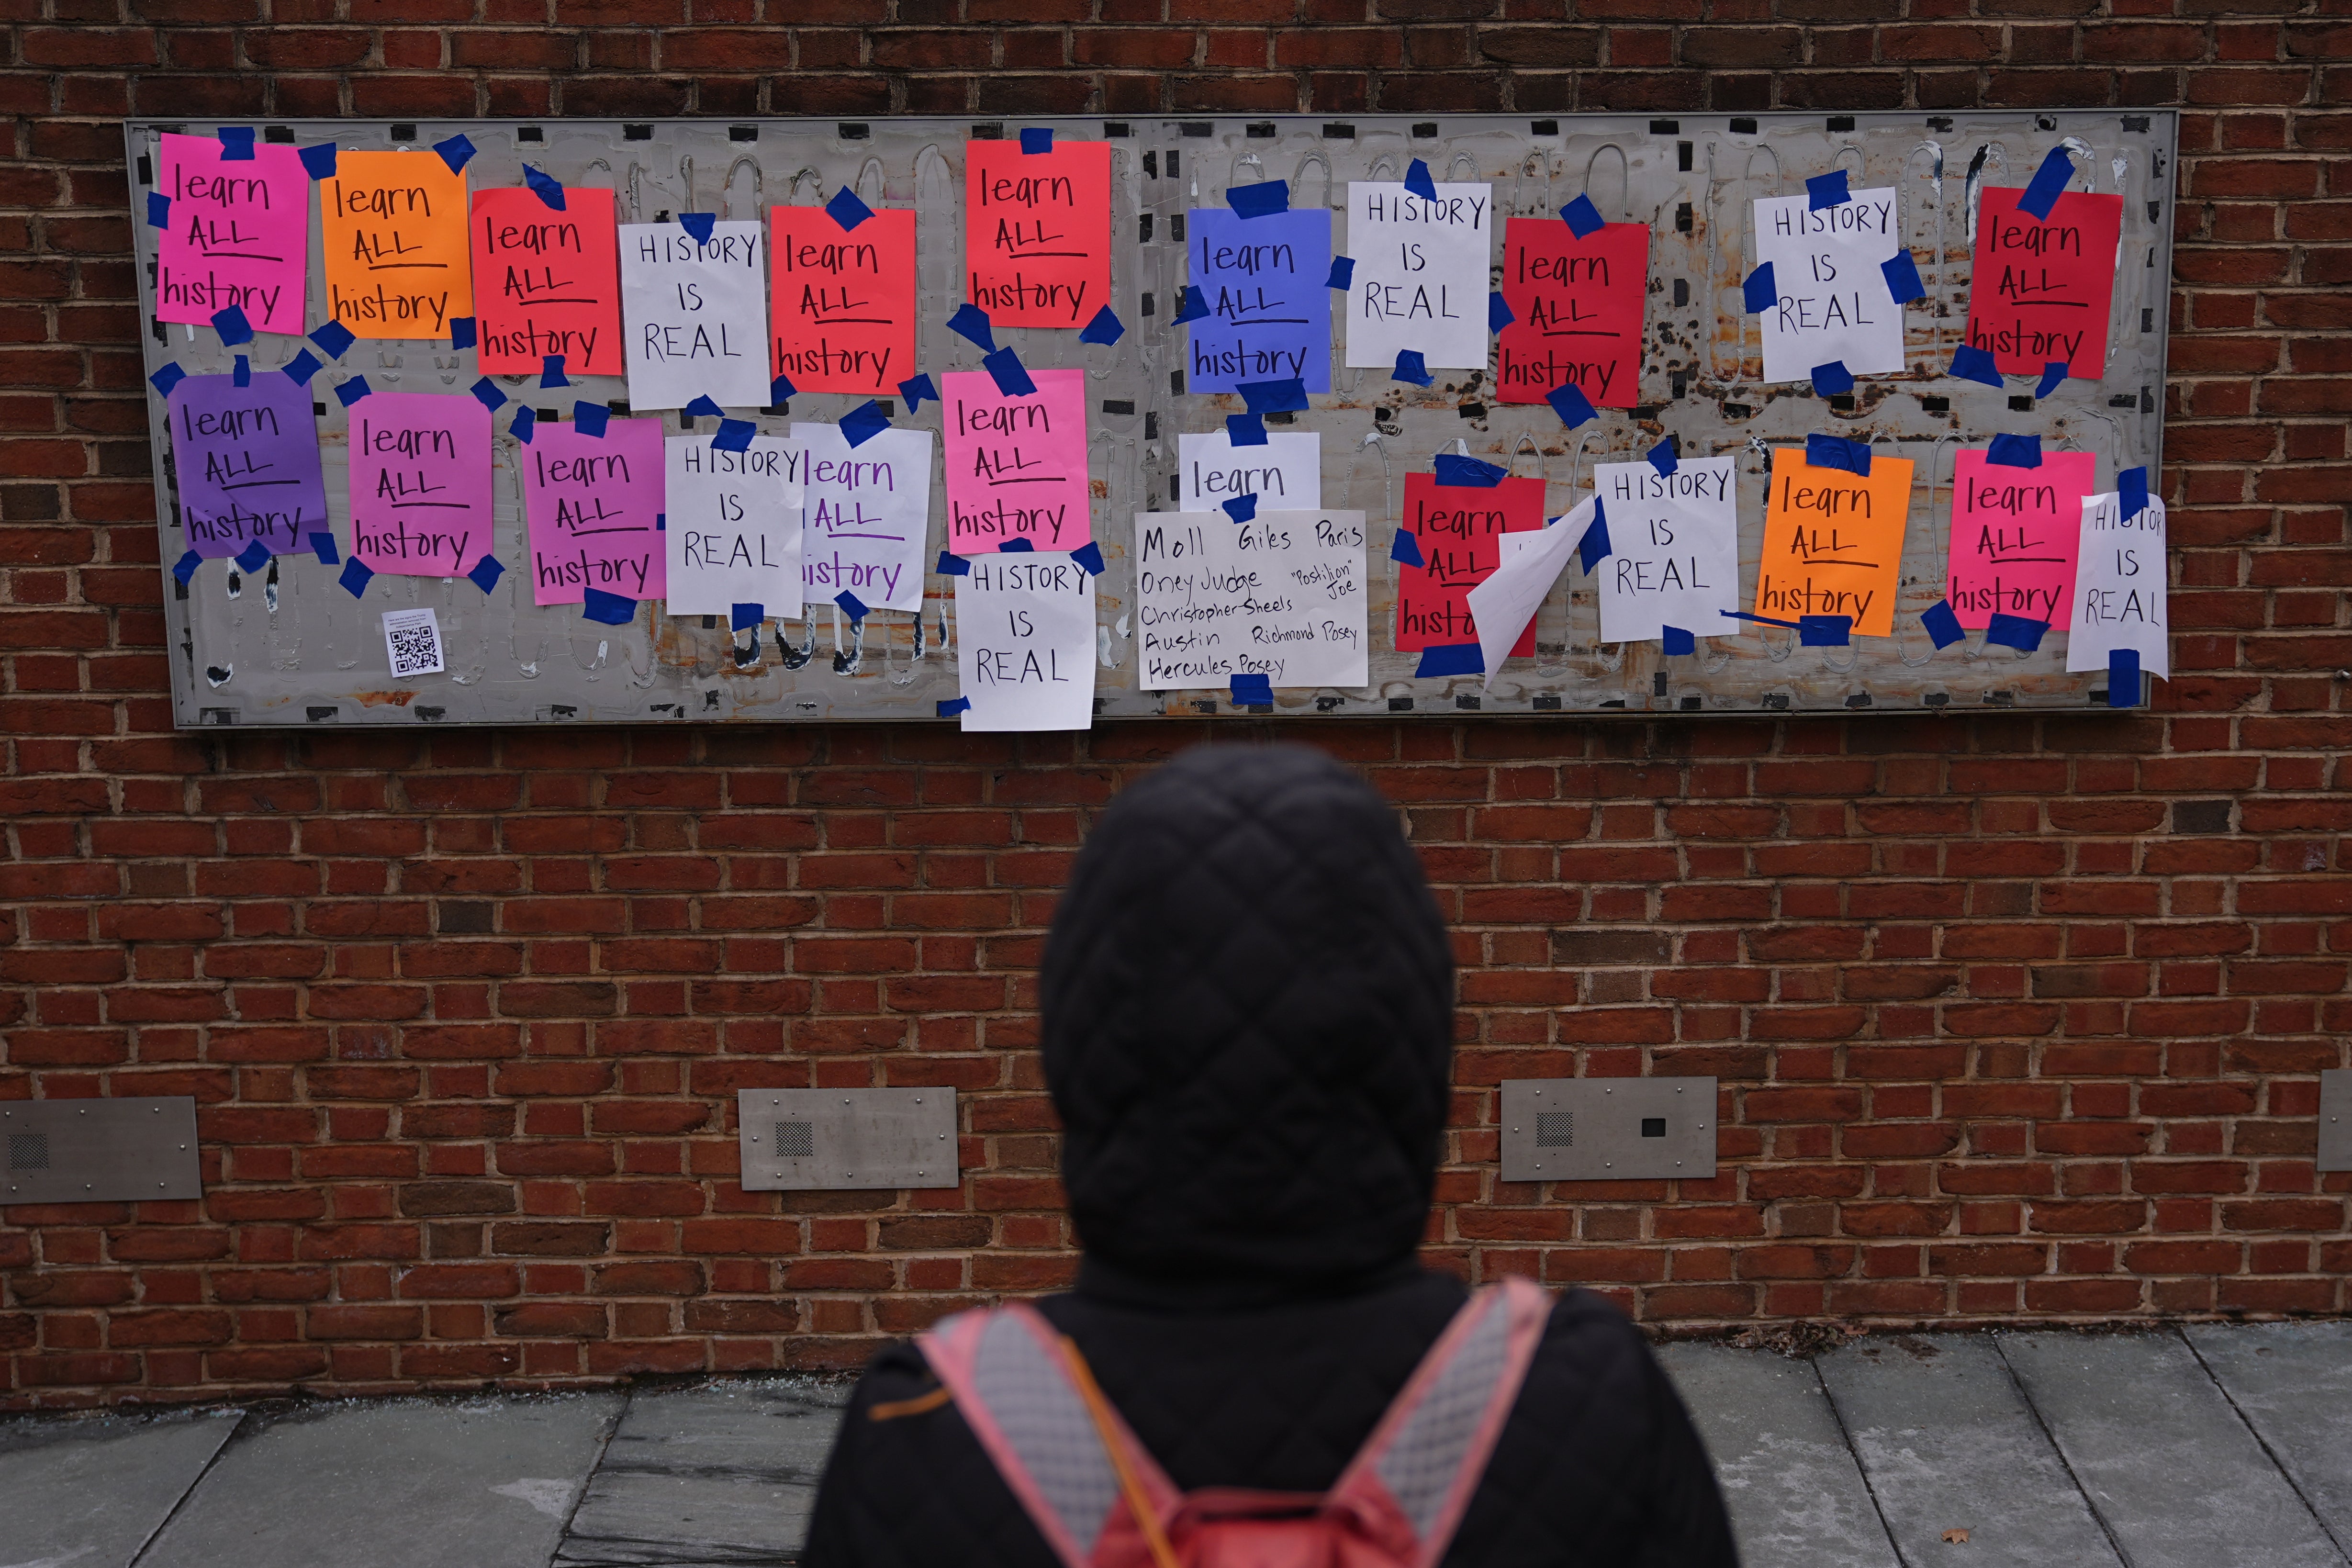 learn
ALL
history
learn
ALL
history
learn
ALL
history
HISTORY
IS
REAL
learn
ALL
history
learn
ALL
history
learn
ALL
history
HISTORY
IS
REAL
learn
ALL
history
HISTORY
IS
REAL
learn
ALL
history
learn
ALL
history
learn
ALL
history
learn
ALL
history
HISTORY
IS
REAL
learn
ALL
istory
learn
ALL
history
HISTORY
IS
REAL
learn
Moll Giles Paris
Oney Judge "Postilion"
Joe
Christopher Sheels
Austin Richmond Posey
Hercules Posey
learn
ALL
histo
HISTORY
IS
REAL
learn
ALL
history
learn
ALL
history
HISTOR
IS
REAL